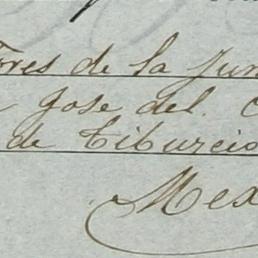 de la Jun
Jose del. C
de Tiburcio
Mex